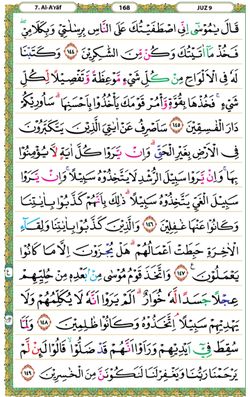 7. Al-A'râf 168 JUZ 9
قَالَ يٰمُوْسٰٓى اِنِّى اصْطَفَيْتُكَ عَلَى النَّاسِ بِرِسٰلٰتِيْ وَبِكَلَامِيْ
فَخُذْ مَآ اٰتَيْتُكَ وَكُنْ مِّنَ الشّٰكِرِيْنَ ﴿١٤٤﴾ وَكَتَبْنَا
لَهٗ فِى الْاَلْوَاحِ مِنْ كُلِّ شَيْءٍ مَّوْعِظَةً وَّتَفْصِيْلًا لِّكُلِّ
شَيْءٍ ۚ فَخُذْهَا بِقُوَّةٍ وَّأْمُرْ قَوْمَكَ يَأْخُذُوْا بِاَحْسَنِهَا ۗ سَاُورِيْكُمْ
دَارَ الْفٰسِقِيْنَ ﴿١٤٥﴾ سَاَصْرِفُ عَنْ اٰيٰتِيَ الَّذِيْنَ يَتَكَبَّرُوْنَ
فِى الْاَرْضِ بِغَيْرِ الْحَقِّ ۗ وَاِنْ يَّرَوْا كُلَّ اٰيَةٍ لَّا يُؤْمِنُوْا
بِهَا ۚ وَاِنْ يَّرَوْا سَبِيْلَ الرُّشْدِ لَا يَتَّخِذُوْهُ سَبِيْلًا ۚ وَاِنْ يَّرَوْا
سَبِيْلَ الْغَيِّ يَتَّخِذُوْهُ سَبِيْلًا ۗ ذٰلِكَ بِاَنَّهُمْ كَذَّبُوْا بِاٰيٰتِنَا
وَكَانُوْا عَنْهَا غٰفِلِيْنَ ﴿١٤٦﴾ وَالَّذِيْنَ كَذَّبُوْا بِاٰيٰتِنَا وَلِقَآءِ
الْاٰخِرَةِ حَبِطَتْ اَعْمَالُهُمْ ۗ هَلْ يُجْزَوْنَ اِلَّا مَا كَانُوْا
يَعْمَلُوْنَ ﴿١٤٧﴾ وَاتَّخَذَ قَوْمُ مُوْسٰى مِنْۢ بَعْدِهٖ مِنْ حُلِيِّهِمْ
عِجْلًا جَسَدًا لَّهٗ خُوَارٌ ۗ اَلَمْ يَرَوْا اَنَّهٗ لَا يُكَلِّمُهُمْ وَلَا
يَهْدِيْهِمْ سَبِيْلًا ۘ اِتَّخَذُوْهُ وَكَانُوْا ظٰلِمِيْنَ ﴿١٤٨﴾ وَلَمَّا
سُقِطَ فِيْٓ اَيْدِيْهِمْ وَرَاَوْا اَنَّهُمْ قَدْ ضَلُّوْا ۙ قَالُوْا لَئِنْ لَّمْ
يَرْحَمْنَا رَبُّنَا وَيَغْفِرْ لَنَا لَنَكُوْنَنَّ مِنَ الْخٰسِرِيْنَ ﴿١٤٩﴾